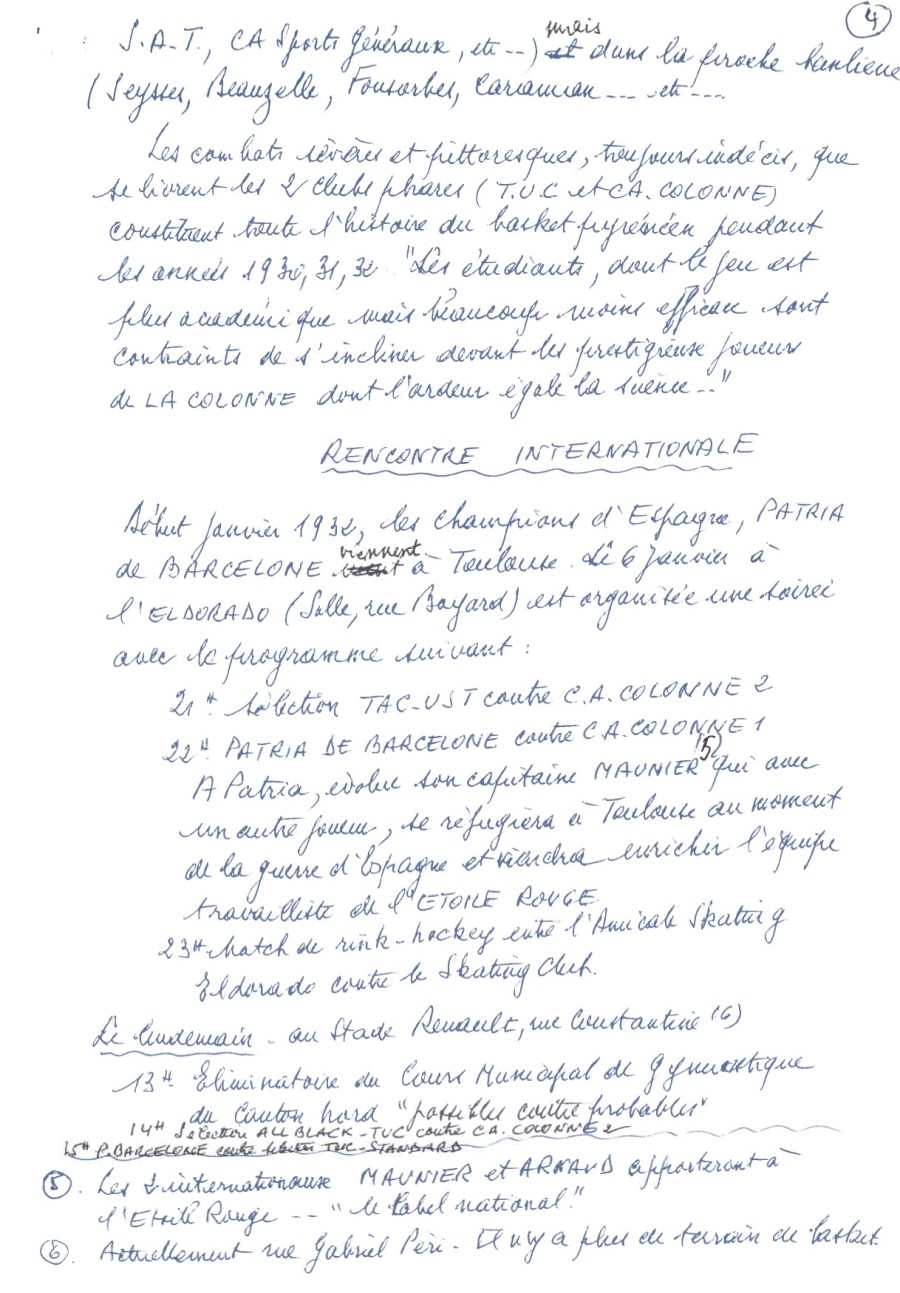 4
S.A.T., CA Sports Généraux, etc --) mais dans la proche banlieue
(Seysses, Beauzelle, Fonsorbes, Caraman --- etc ---
Les combats sévères et pittoresques, toujours indécis, que
se livrent les 2 clubs phares (T.U.C et CA. COLONNE)
constituent toute l'histoire du basket pyrénéen pendant
les années 1930, 31, 32 "Les étudiants, dont le jeu est
plus académique mais beaucoup moins efficace sont
contraints de s'incliner devant les prestigieux joueurs
de LA COLONNE dont l'ardeur égale la science --"
RENCONTRE INTERNATIONALE
Début Janvier 1932, les champions d'Espagne, PATRIA
de BARCELONE viennent à Toulouse. Le 6 Janvier à
l'ELDORADO (Salle, rue Bayard) est organisée une soirée
avec le programme suivant :
21H Sélection TAC-UST contre C.A. COLONNE 2
22H PATRIA DE BARCELONE contre C.A. COLONNE 1
A Patria, évolue son capitaine MAUNIER (5) qui avec
un autre joueur, se réfugiera à Toulouse au moment
de la guerre d'Espagne et viendra enrichir l'équipe
travailliste de l'ETOILE ROUGE.
23H Match de rink-hockey entre l'Amicale Skating
Eldorado contre le Skating Club.
Le lendemain - au Stade Renault, rue Constantine (6)
13H Eliminatoire du Cours Municipal de gymnastique
du Canton nord "possibles contre probables"
14H Sélection ALL BLACK-TUC contre CA. COLONNE 2
15H P. BARCELONE contre TUC-STANDARD
(5). Les 2 internationaux MAUNIER et ARNAUD apporteront à
l'Etoile Rouge -- "le label national".
(6). Actuellement rue Gabriel Péri - Il n'y a plus de terrain de basket.